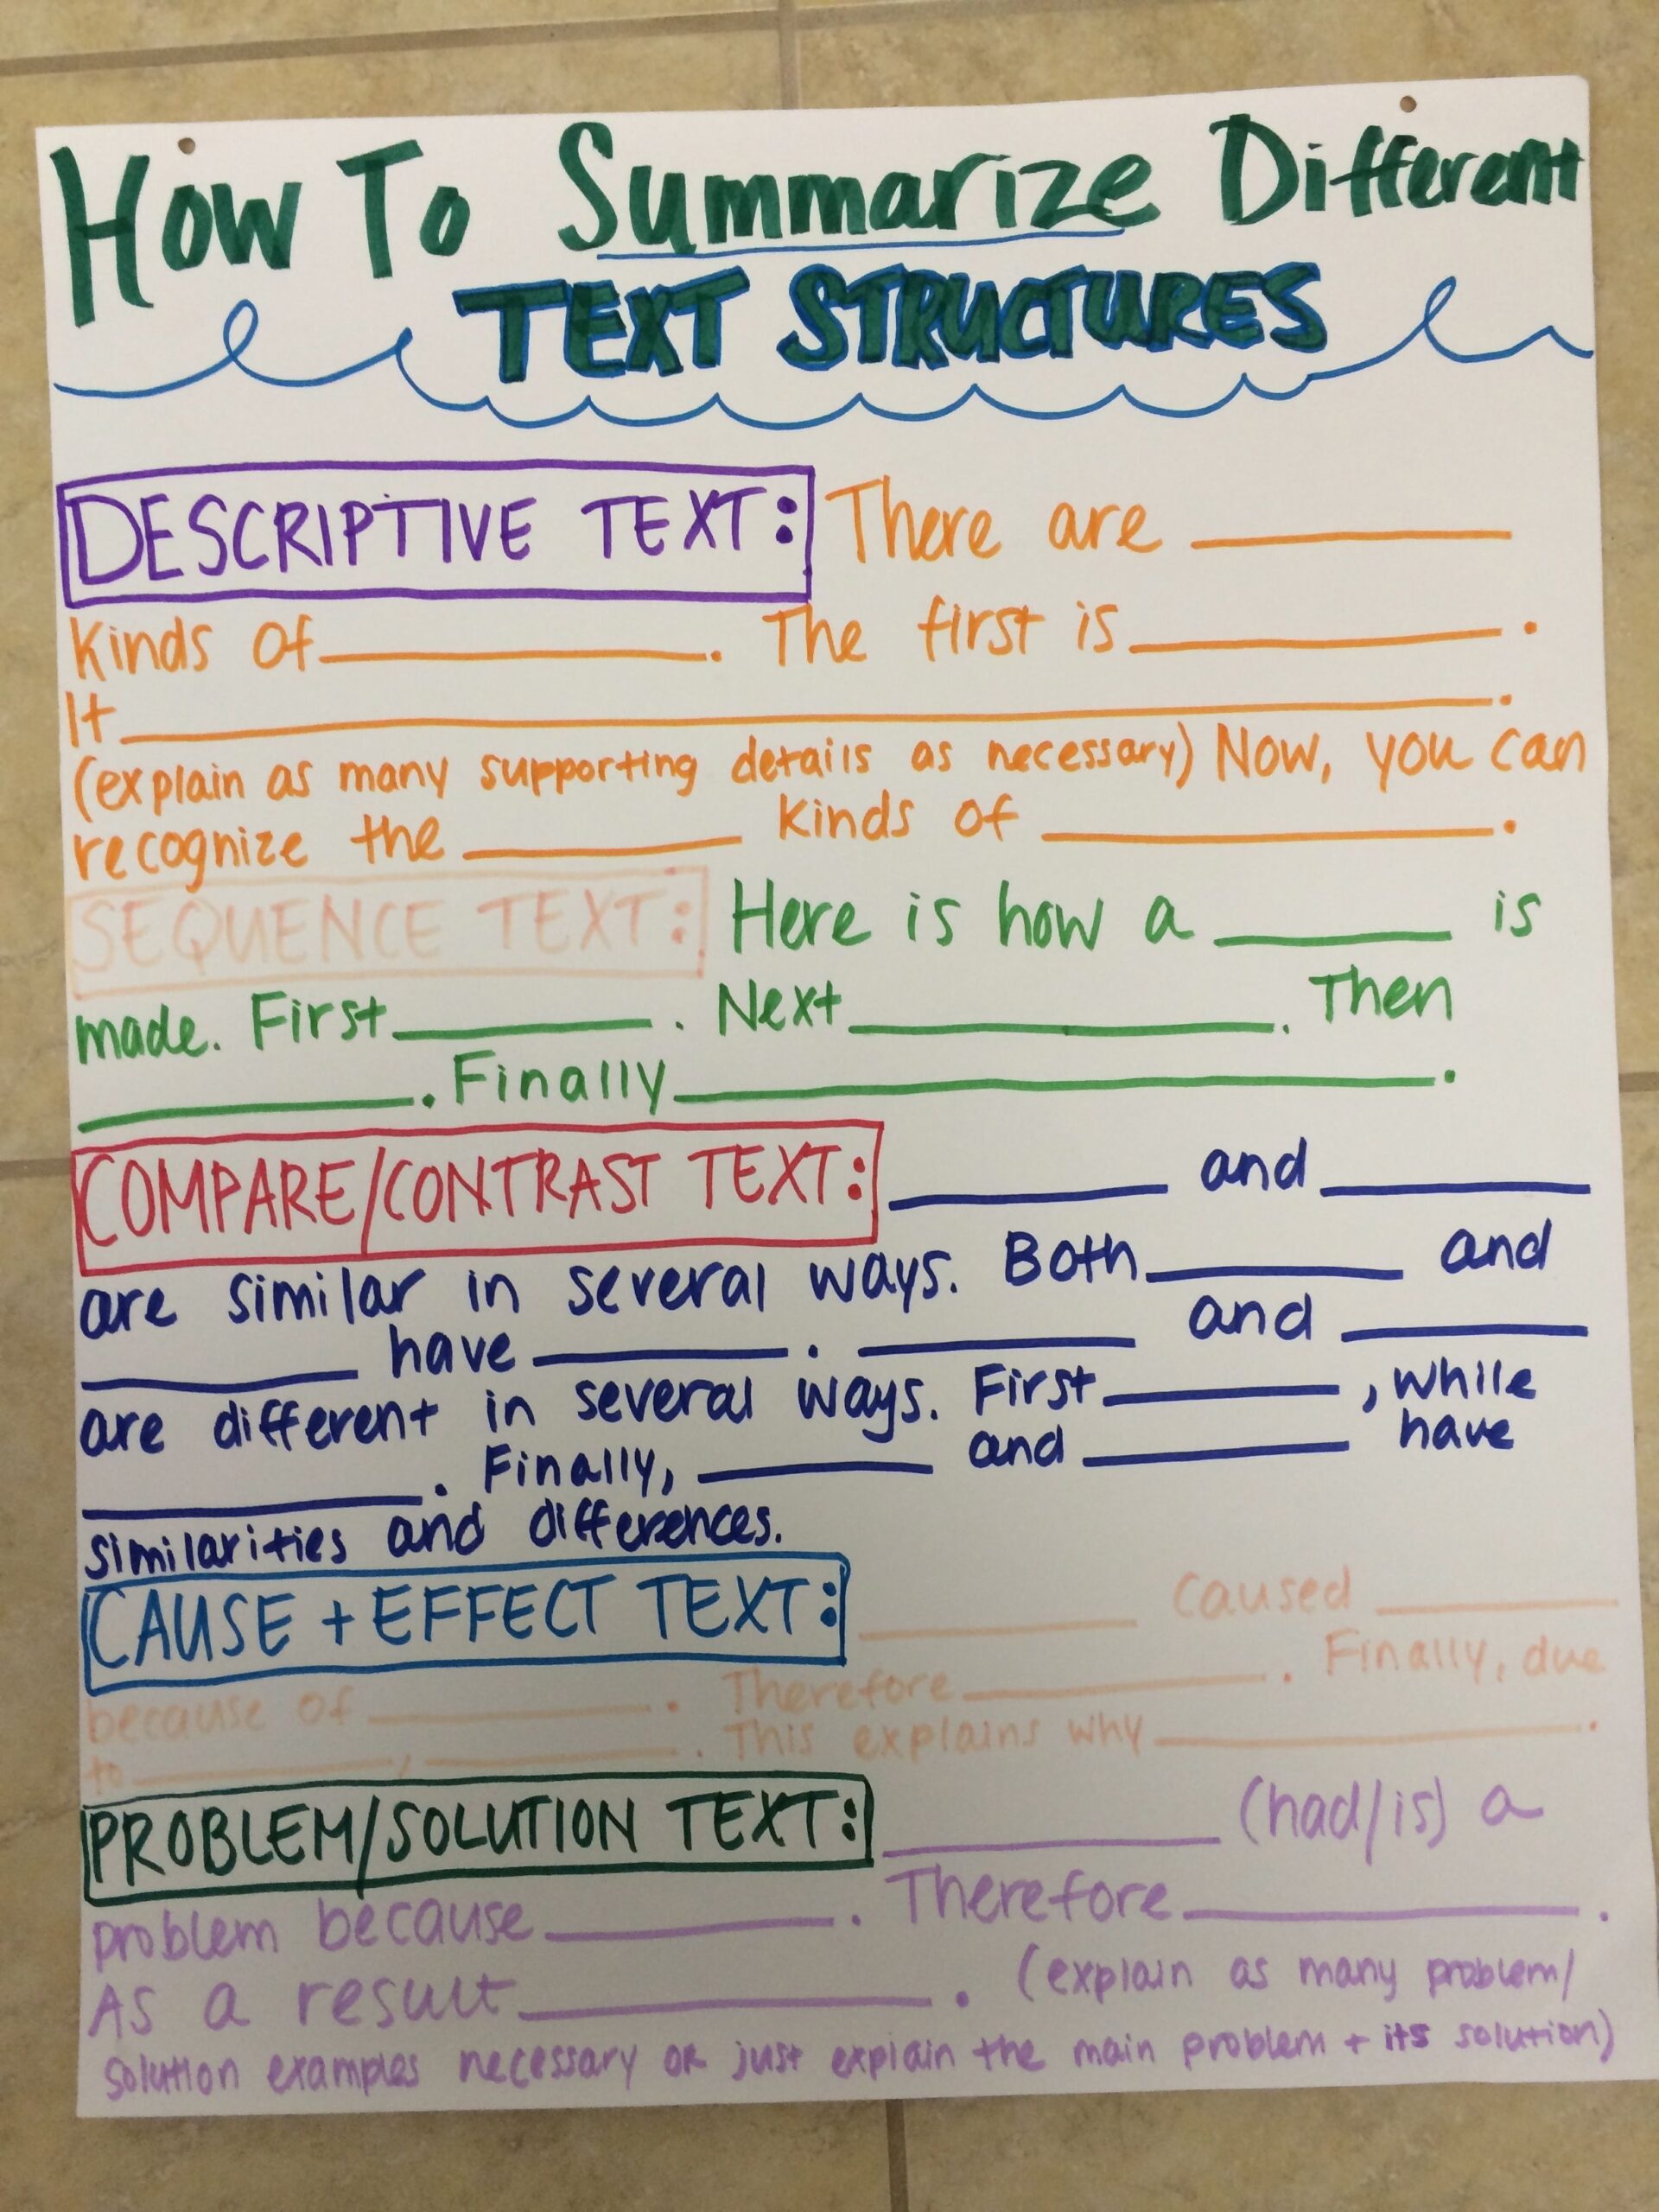 How To Summarize Different
TEXT STRUCTURES
DESCRIPTIVE TEXT: There are ________
Kinds of ________. The first is ________.
It ________.
(explain as many supporting details as necessary) Now, you can
recognize the ________ kinds of ________.
SEQUENCE TEXT: Here is how a ________ is
made. First ________. Next ________. Then
________. Finally ________.
COMPARE/CONTRAST TEXT: ________ and ________
are similar in several ways. Both ________ and
________ have ________. ________ and ________
are different in several ways. First ________, while
________. Finally, ________ and ________ have
similarities and differences.
CAUSE + EFFECT TEXT: ________ caused ________
because of ________. Therefore ________. Finally, due
to ________, ________. This explains why ________.
PROBLEM/SOLUTION TEXT: ________ (had/is) a
problem because ________. Therefore ________.
As a result ________. (explain as many problem/
solution examples necessary or just explain the main problem + its solution)